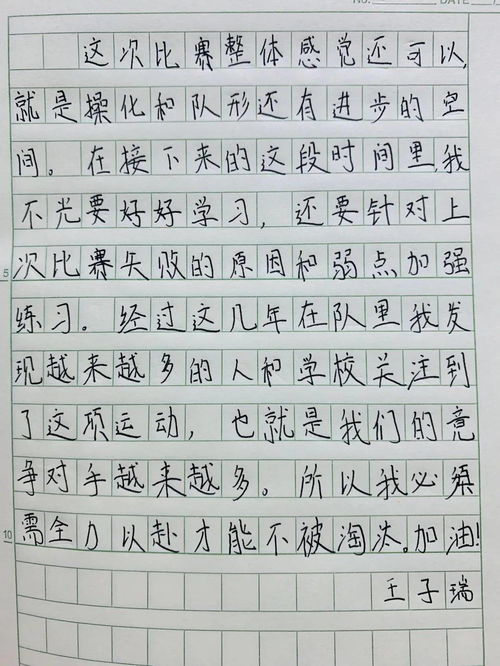 NO. DATE
这次比赛整体感觉还可以,
就是操化和队形还有进步的空
间。在接下来的这段时间里,我
不光要好好学习,还要针对上
次比赛失败的原因和弱点加强
练习。经过这几年在队里我发
现越来越多的人和学校关注到
了这项运动,也就是我们的竟
争对手越来越多。所以我必须
需全力以赴才能不被淘汰。加油!
王子瑞
5
10